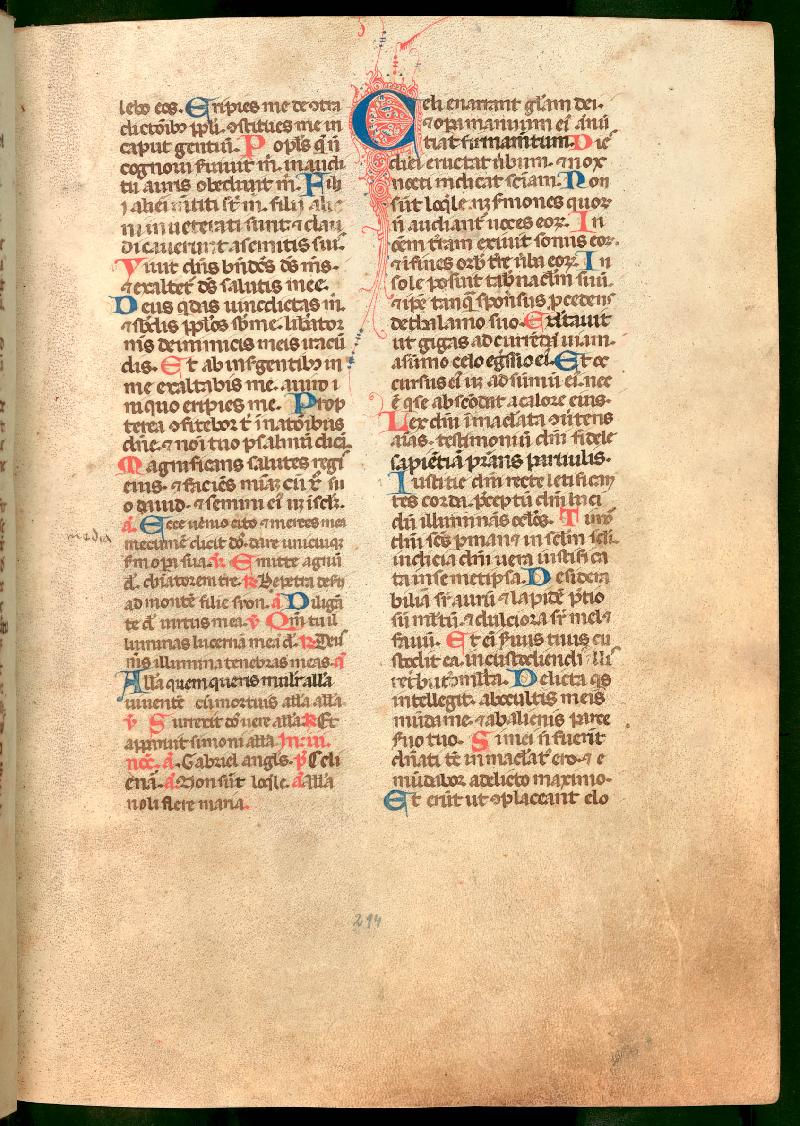 lebo eos. Eripies me de ɔtra
dictōib9 ppli. ɔstitues me in
caput gentiū. Popl9s q̄ nō
cognoui seruiuit m̄. in audi
tu auris obediuit m̄. Filii
alieni mentiti st̄ m̄. filii alie
ni inueterati sunt. ⁊ clau
dicauerunt a semitis suis.
Viuit dn̄s ⁊ bn̄dc̄s ds̄ m̄s.
⁊ exaltet̄ ds̄ salutis mee.
Deus q̄ das uindictas m̄.
⁊ sb̄dis pplos sb̄ me. liberator
m̄s de inimicis meis iracū
dis. Et ab insurgentib9 in
me exaltabis me. a uiro i
niquo eripies me. Prop
terea ɔfitebor t̄ in natōibus
dn̄e. ⁊ noī tuo psalmū dicā.
Magnificans salutes regis
eius. ⁊ faciēs miām
dauid. ⁊ semini ei9
Ecce uēnio cito ⁊ merces mea
mecum ē dicit
opa sua. Emitte agnū
ad montē filie syon. Diligā
te d. uirtus mea. Qm̄ tu il
luminas lucernā meā d. Deus
m̄s illumina tenebras meas.
Alla quem queris mulier alla
uiuentē cū mortuis alla alla
Surrexit dn̄s uere alla Et
apparuit simoni alla In iii.
noc̄. a. Gabriel angls. p̄ Celi
enā. a Non sūt loq̄le. a alla
noli flere maria.
media
Celi enarrant glām dei.
⁊ opa manuum ei9 ānū
tiat firmamentum. Dies
diei eructat ūbum. ⁊ nox
nocti indicat sciam. Non
sūt loq̄le neq3 sermones quor
n̄ audiant uoces eor. In
oēm t̄ram exiuit sonus eor.
⁊ i fines orb t̄re ūba eor. In
sole posuit tab̄nac̄lm suū.
⁊ ipe tanq̄ sponsus p̄cedens
de thalamo suo. Exltauit
ut gigas ad currēdā uiam.
a sūmo celo egssio ei9. Et oc
cursus ei9 usq3 ad sūmū ei9. nec
ē q̄ se abscōdat a calore eius.
Lex dn̄i īmaclata ɔū̄tens
aīas. testimoniū dn̄i fidele
sapiētiā prāns paruulis.
Iustitie dn̄i recte letifican
tes corda. p̄ceptū dn̄i luci
dū illuminās oclos. Timor
dn̄i scs̄ pmans in sclm̄ scli.
iudicia dn̄i uera iustifica
ta in semetipsa. Desidera
bilia sr̄ aurū ⁊ lapidē p̄tio
sū multū. ⁊ dulciora sr̄ mel ⁊
fauū. Et eī seruus tuus cu
stodit ea. in custodiendis illis
retributio mlta. Delicta q̄s
intellegit. ab occultis meis
munda me. ⁊ ab alienis parce
seruo tuo. Si mei n̄ fuerīt
dn̄ati tc̄ inmaclat9 ero. ⁊ e
mūdabor a delicto maximo.
Et erūt ut ɔplaceant elo
294